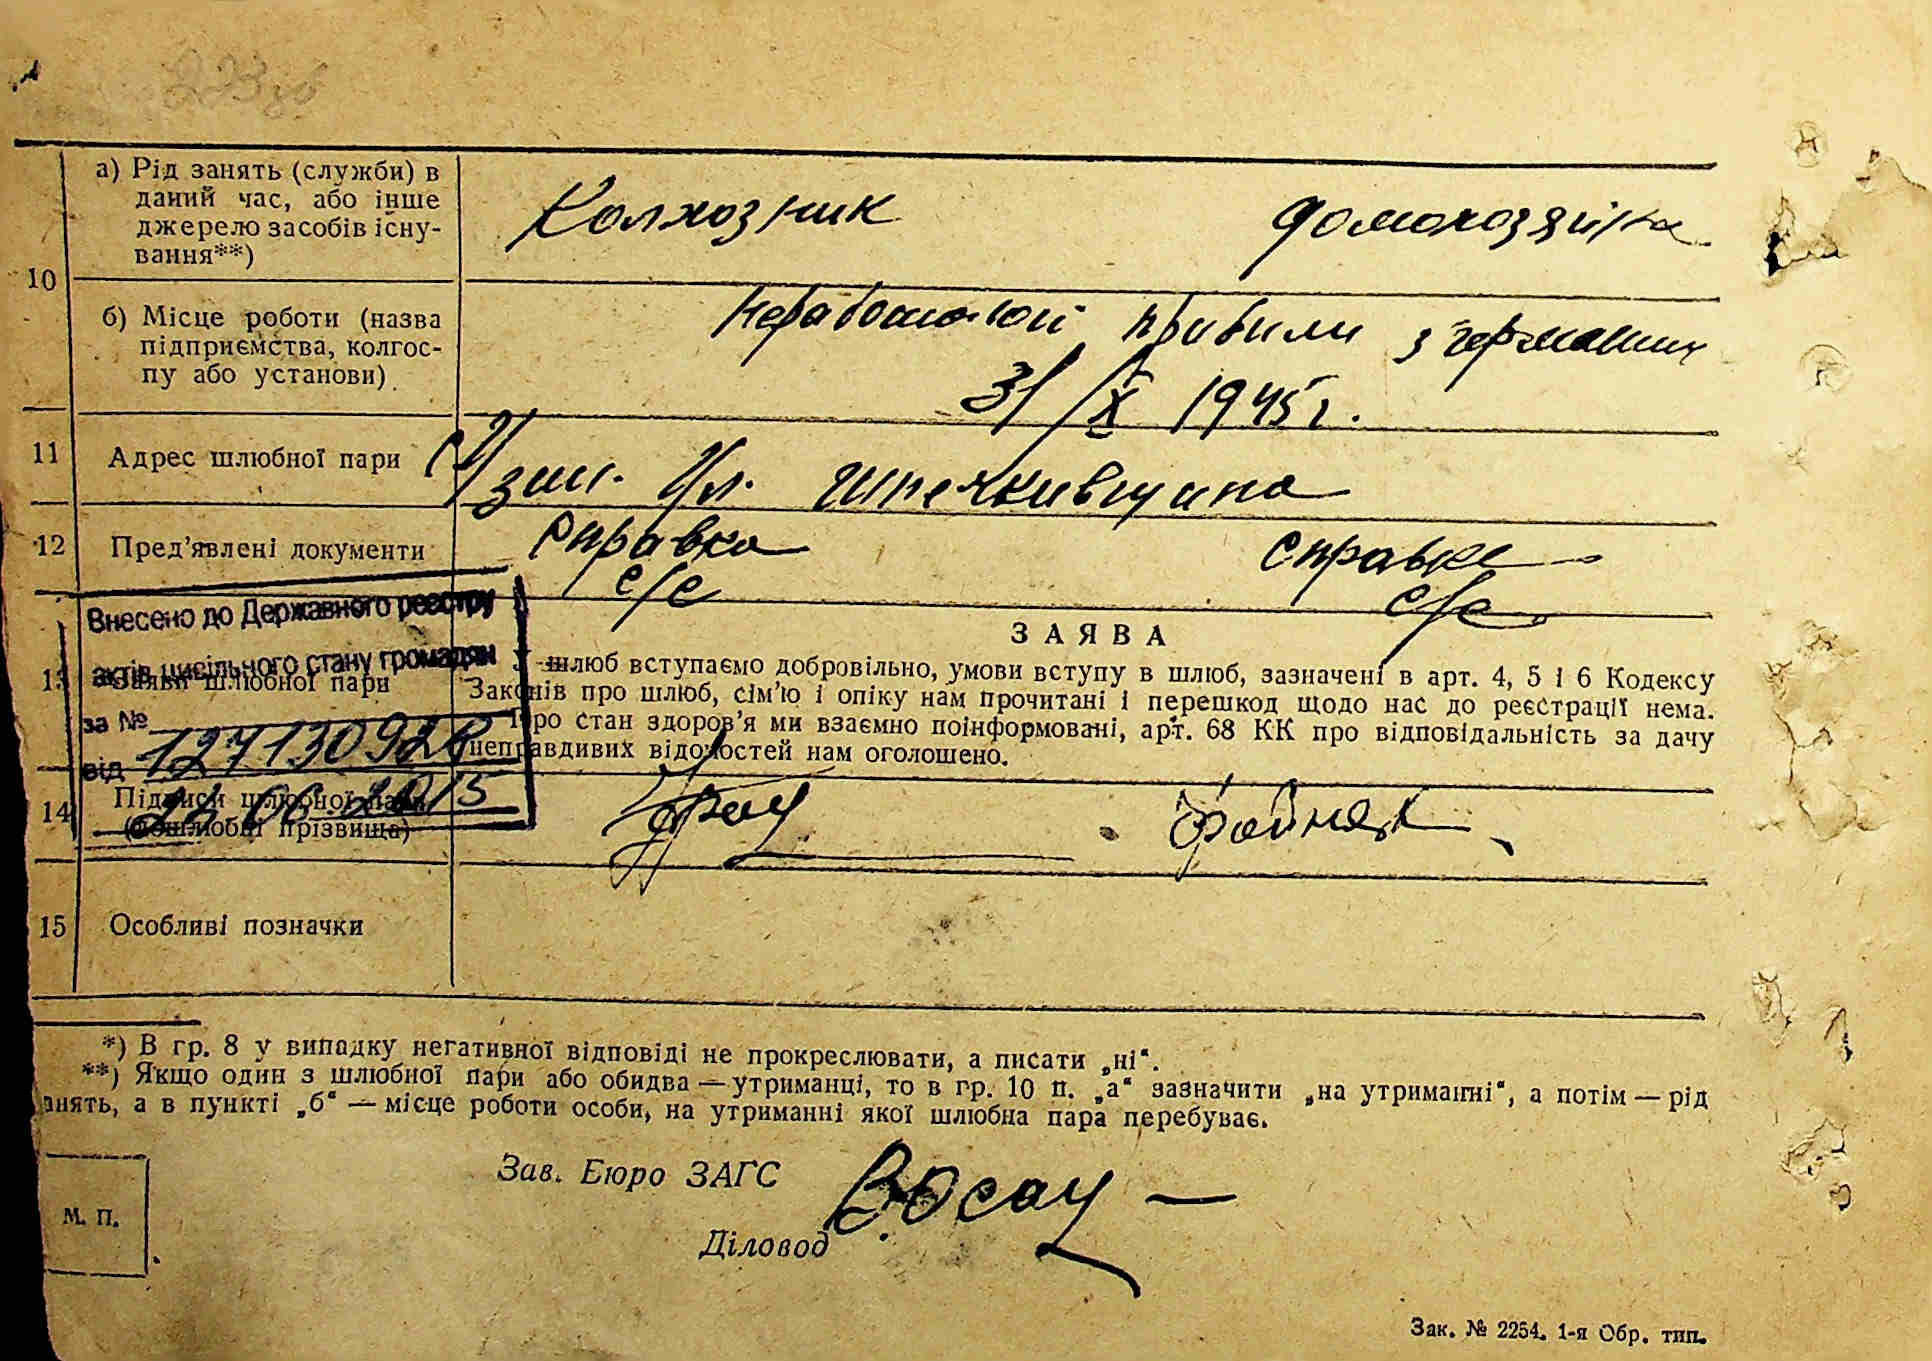 а) Рід занять (служби) в
даний час, або інше
джерело засобів існу-
вання**)
Колхозник домохозяйка
10
б) Місце роботи (назва
підприємства, колгос-
пу або установи)
прибили з германии
31/X 1945 г.
11 Адрес шлюбної пари
12 Пред'явлені документи справка справка
с/с с/с
Внесено до Державного реєстру
актів цивільного стану громадян
за №
від
ЗАЯВА
13 Заява шлюбної пари
У шлюб вступаємо добровільно, умови вступу в шлюб, зазначені в арт. 4, 5 і 6 Кодексу
Законів про шлюб, сім'ю і опіку нам прочитані і перешкод щодо нас до реєстрації нема.
Про стан здоров'я ми взаємно поінформовані, арт. 68 КК про відповідальність за дачу
неправдивих відомостей нам оголошено.
14 Підписи шлюбної пари
(дошлюбні прізвища)
15 Особливі позначки
*) В гр. 8 у випадку негативної відповіді не прокреслювати, а писати „ні“.
**) Якщо один з шлюбної пари або обидва — утриманці, то в гр. 10 п. „а“ зазначити „на утриманні“, а потім — рід
анять, а в пункті „б“ — місце роботи особи, на утриманні якої шлюбна пара перебуває.
Зав. Бюро ЗАГС
М. П.
Діловод
Зак. № 2254. 1-я Обр. тип.